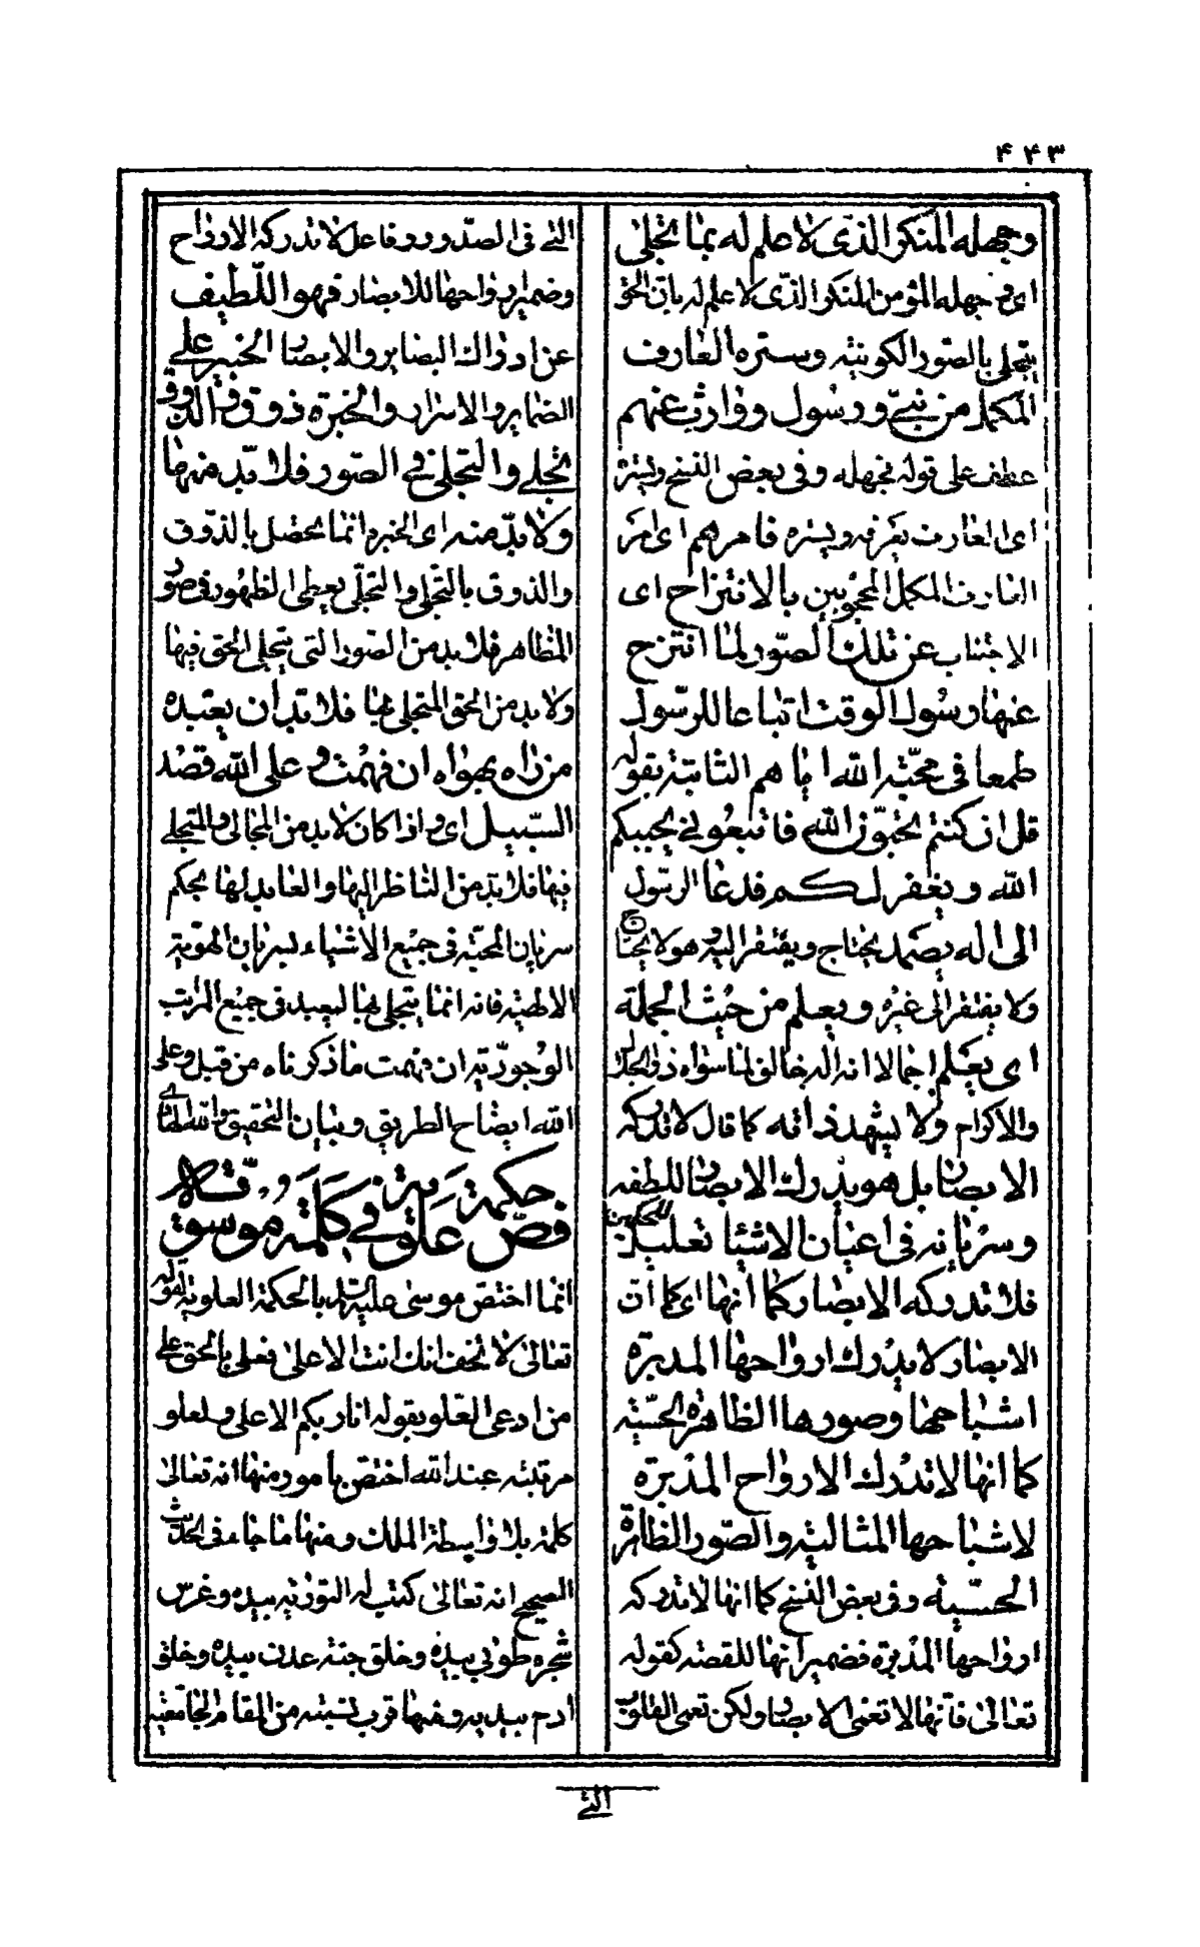 ۴۴۳
وجهله المنكر الذى لا علم له بما تجلى
اى فجهله المؤمن المنكر الذى لا علم له بان الحق
يتجلى بالصور الكونية وستره العارف
المكمل من نبى و رسول ووارث عنهم
عطف على قوله فجهله وفى بعض النسخ ويستره
اى العارف يعرفه ويستره فامرهم اى امر
العارف المكمل المحجوبين بالانتزاح اى
الاجتناب عن تلك الصور لما انتزح
عنها رسول الوقت اتباعا للرسول
طمعا فى محبة الله اياهم الثابتة بقوله
قل ان كنتم تحبون الله فاتبعونى يحببكم
الله و يغفر لكم فدعا الرسول
الى اله يصمد يحتاج ويفتقر اليه وهو لا يحتاج
ولا يفتقر الى غيره ويعلم من حيث الجملة
اى يعلم اجمالا انه اله خالق لما سواه ذو الجلال
والاكرام ولا يشهد ذاته كما قال لا تدركه
الابصار بل هو يدرك الابصار للطفه
وسريانه فى اعيان الاشياء تعليل للحكمين
فلا تدركه الابصار كما أنها اى كما أن
الابصار لا يدرك ارواحها المدبرة
اشباحها وصورها الظاهرة الحسية
كما انها لا تدرك الارواح المدبرة
لاشباحها المثالية والصور الظاهرة
الحسية وفى بعض النسخ كما انها لا تدركه
ارواحها المدبرة فضمير انها للقصة كقوله
تعالى فانها لا تعمى الابصار ولكن تعمى القلوب
التى فى الصدور وفاعل لا تدركه الارواح
وضمير ارواحها للابصار فهو اللطيف
عن ادراك البصاير والابصار الخبير على
الضماير والاسرار والخبرة ذوق والذوق
تجلى والتجلى فى الصور فلا بد منها
ولا بد منه اى الخبرة انما يحصل بالذوق
والذوق بالتجلى والتجلى يعطى الظهور فى صور
المظاهر فلا بد من الصور التى يتجلى الحق فيها
ولا بد من الحق المتجلى بها فلا بد ان يعبده
من رآه بهواه ان فهمت وعلى الله قصد
السبيل اى واذا كان لا بد من المجالى والمتجلى
فيها فلا بد من الناظر اليها والعابد لها بحكم
سريان المحبة فى جميع الاشياء لسريان الهوية
الالهية فانه انما يتجلى بها ليعبد فى جميع المراتب
الوجودية ان فهمت ما ذكرناه من قبل وعلى
الله ايضاح الطريق وبيان التحقيق والله الهادى
فصّ حكمة علوية فى كلمة موسوية
انما اختص موسى عليه السلام بالحكمة العلوية لقوله
تعالى لا تخف انك انت الاعلى فعلى بالحق على
من ادعى العلو بقوله انا ربكم الاعلى ولعلو
مرتبته عند الله اختص بامور منها انه تعالى
كلمه بلا واسطة الملك ومنها ما جاء فى الحديث
الصحيح انه تعالى كتب له التورية بيده وغرس
شجرة طوبى بيده وخلق جنة عدن بيده وخلق
ادم بيديه ومنها قرب نسبته من المقام الجامعية
التى